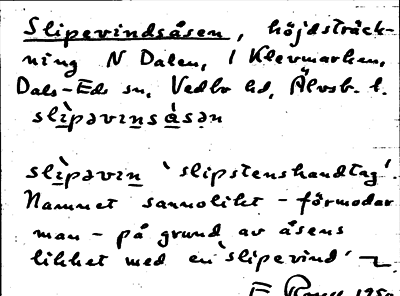 Slipevindsåsen, höjdsträck-
ning N Dalen, i Klevmarken,
Dals-Eds sn, Vedbo hd, Älvsb. l.
slìpəvinsåsən
slìpəvin 'slipstenshandtag'.
Namnet sannolikt - förmodar
man - på grund av åsens
likhet med en 'slipevind'